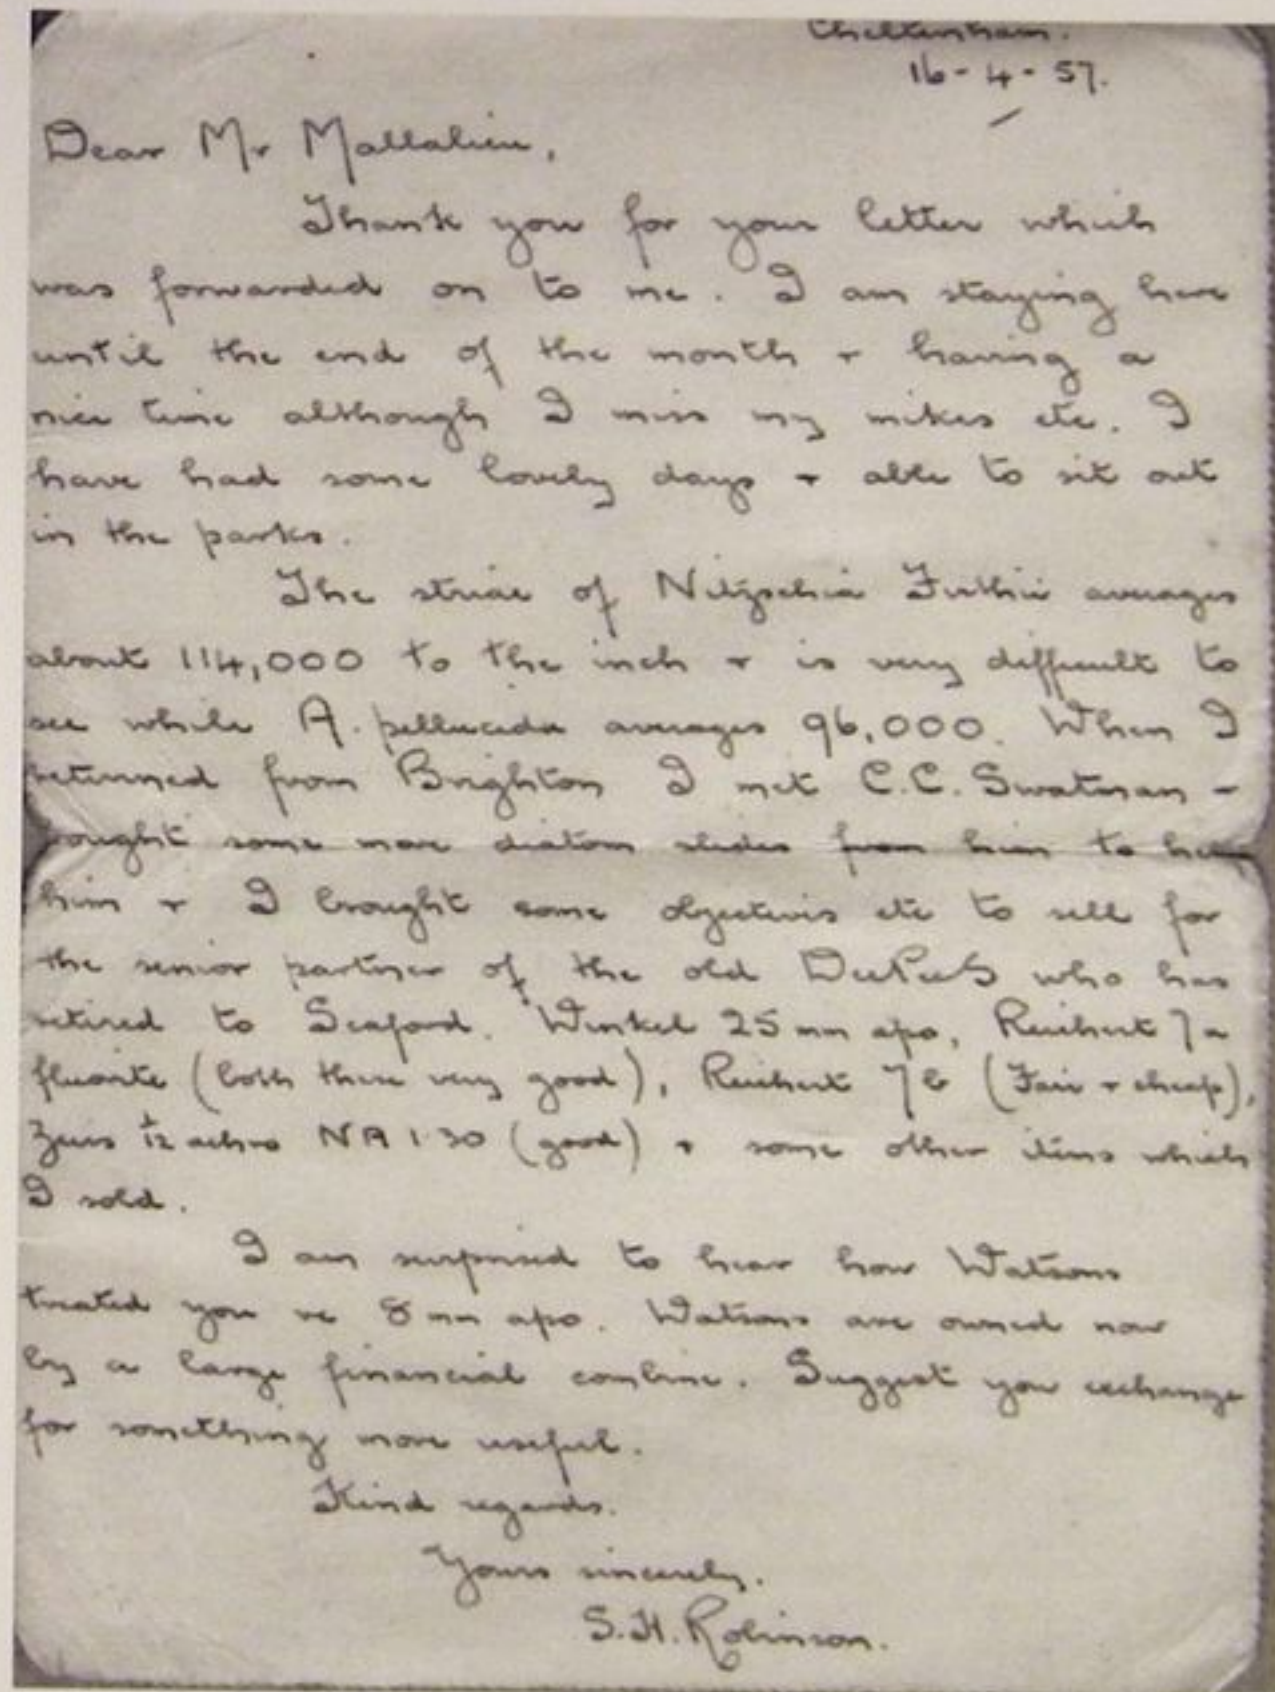 Cheltenham.
16-4-57.
Dear Mr Mallalieu,
Thank you for your letter which
was forwarded on to me. I am staying here
until the end of the month + having a
nice time although I miss my mikes etc. I
have had some lovely days + able to sit out
in the parks.
The striae of Nitzschia averages
about 114,000 to the inch + is very difficult to
see while A. pellucida averages 96,000. When I
returned from Brighton I met C.C. Swatman -
bought some more diatom slides from him to
him + I brought some objectives etc to sell for
the senior partner of the old who has
retired to Seaford. Winkel 25 mm apo, Reichert 7a
fluorite (both these very good), Reichert 7b (Fair + cheap),
Zeiss 1/12 achro NA 1.30 (good) + some other items which
I sold.
I am surprised to hear how Watsons
treated you re 8 mm apo. Watsons are owned now
by a large financial combine. Suggest you exchange
for something more useful.
Kind regards.
Yours sincerely.
S.H. Robinson.